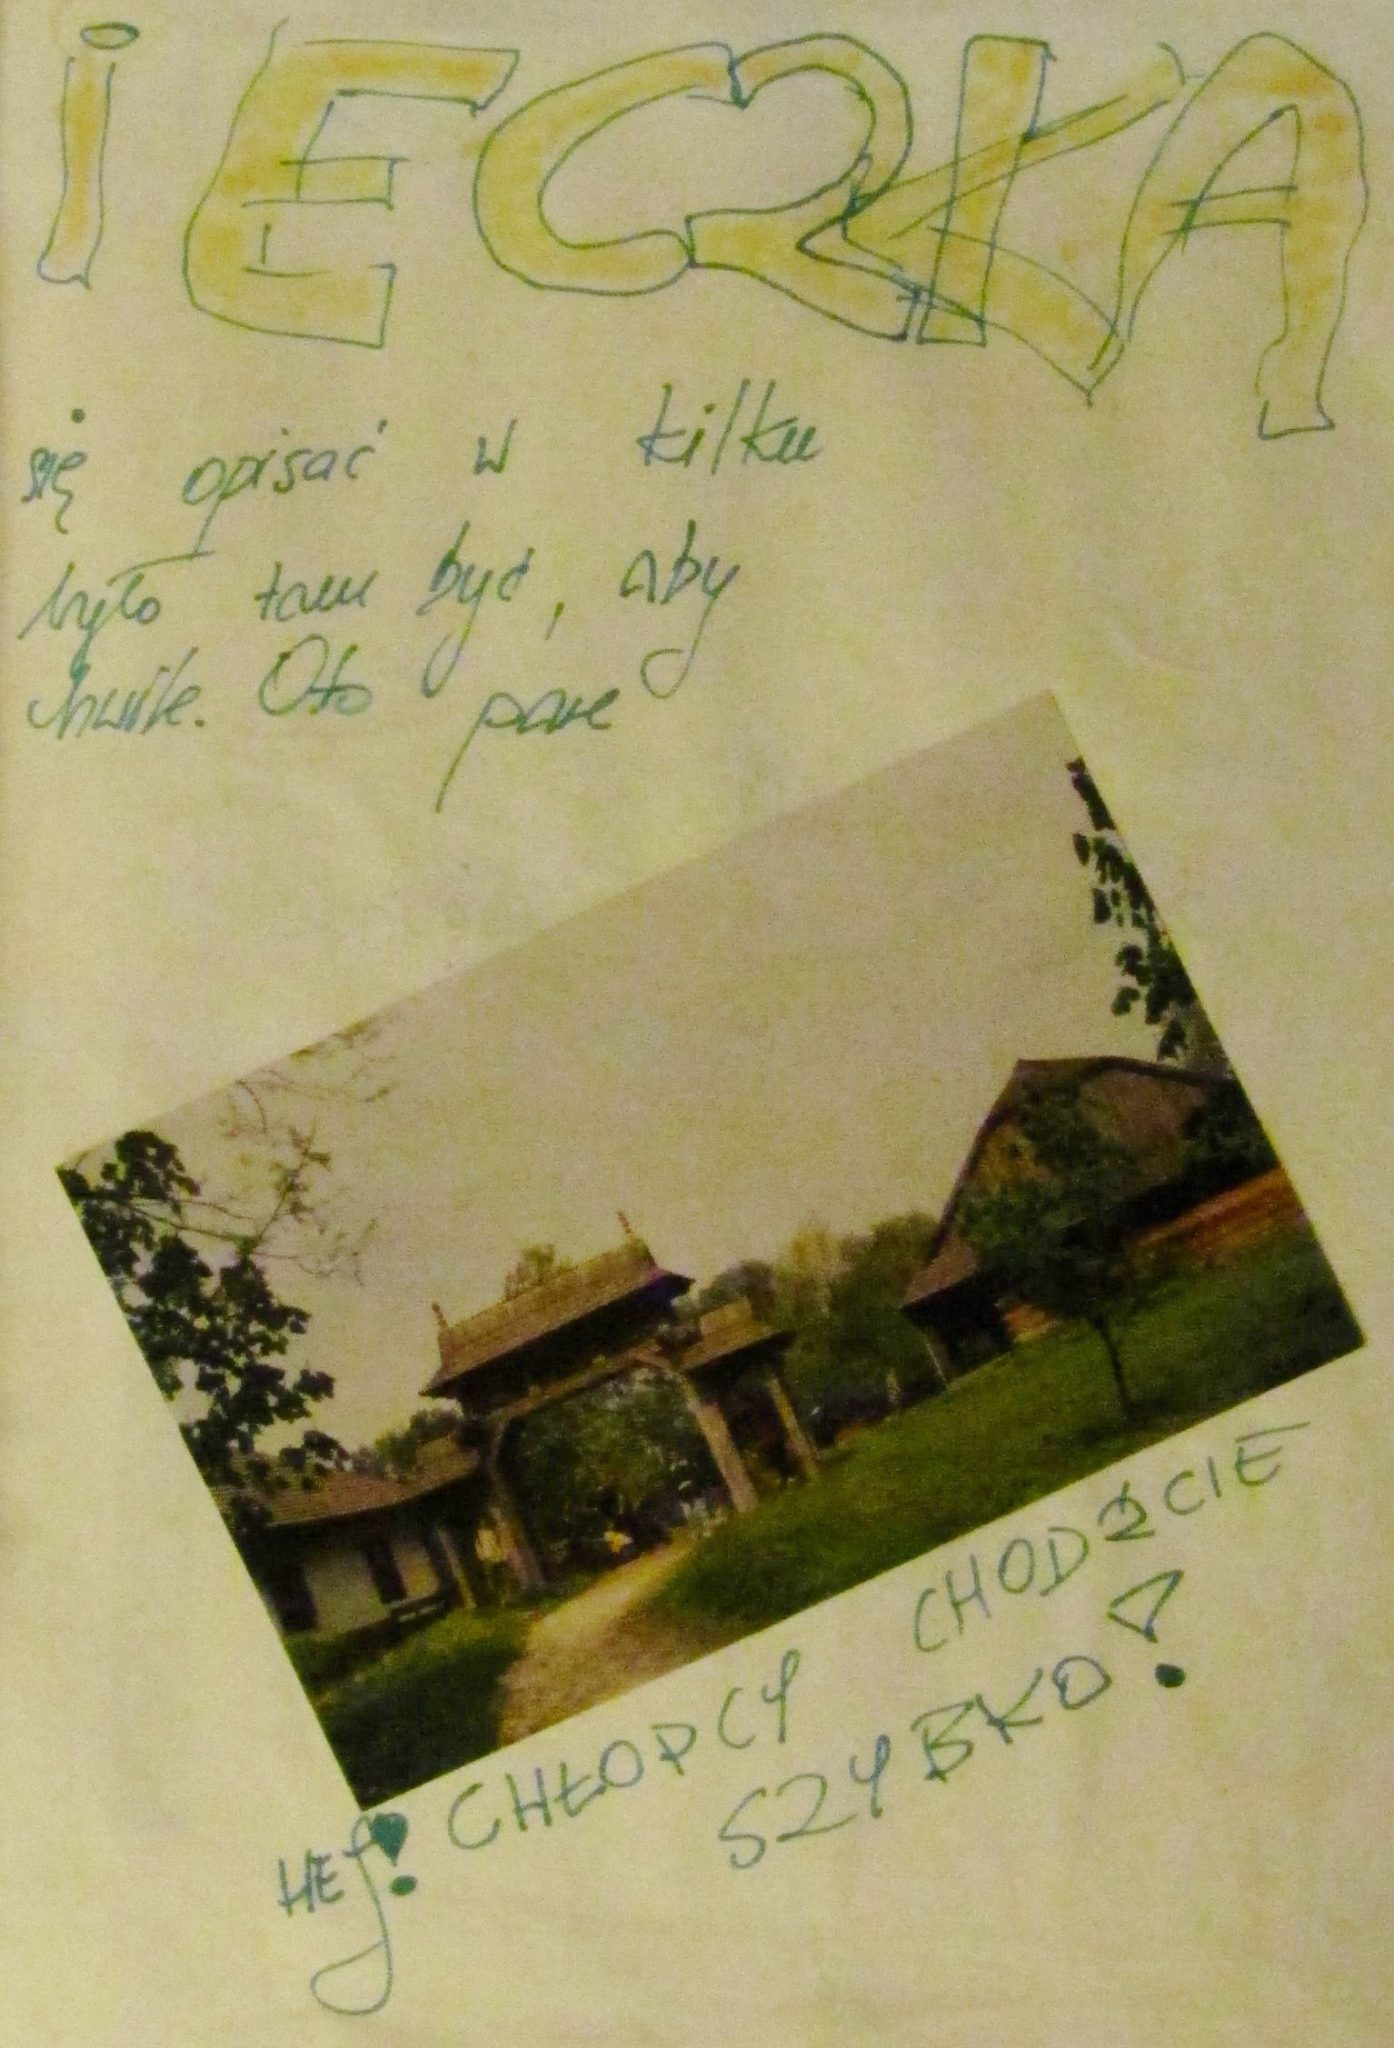 iECZKA
się opisać w kilku
było tam być, aby
chwile. Oto parę
HEJ! CHŁOPCY CHODŹCIE
SZYBKO!